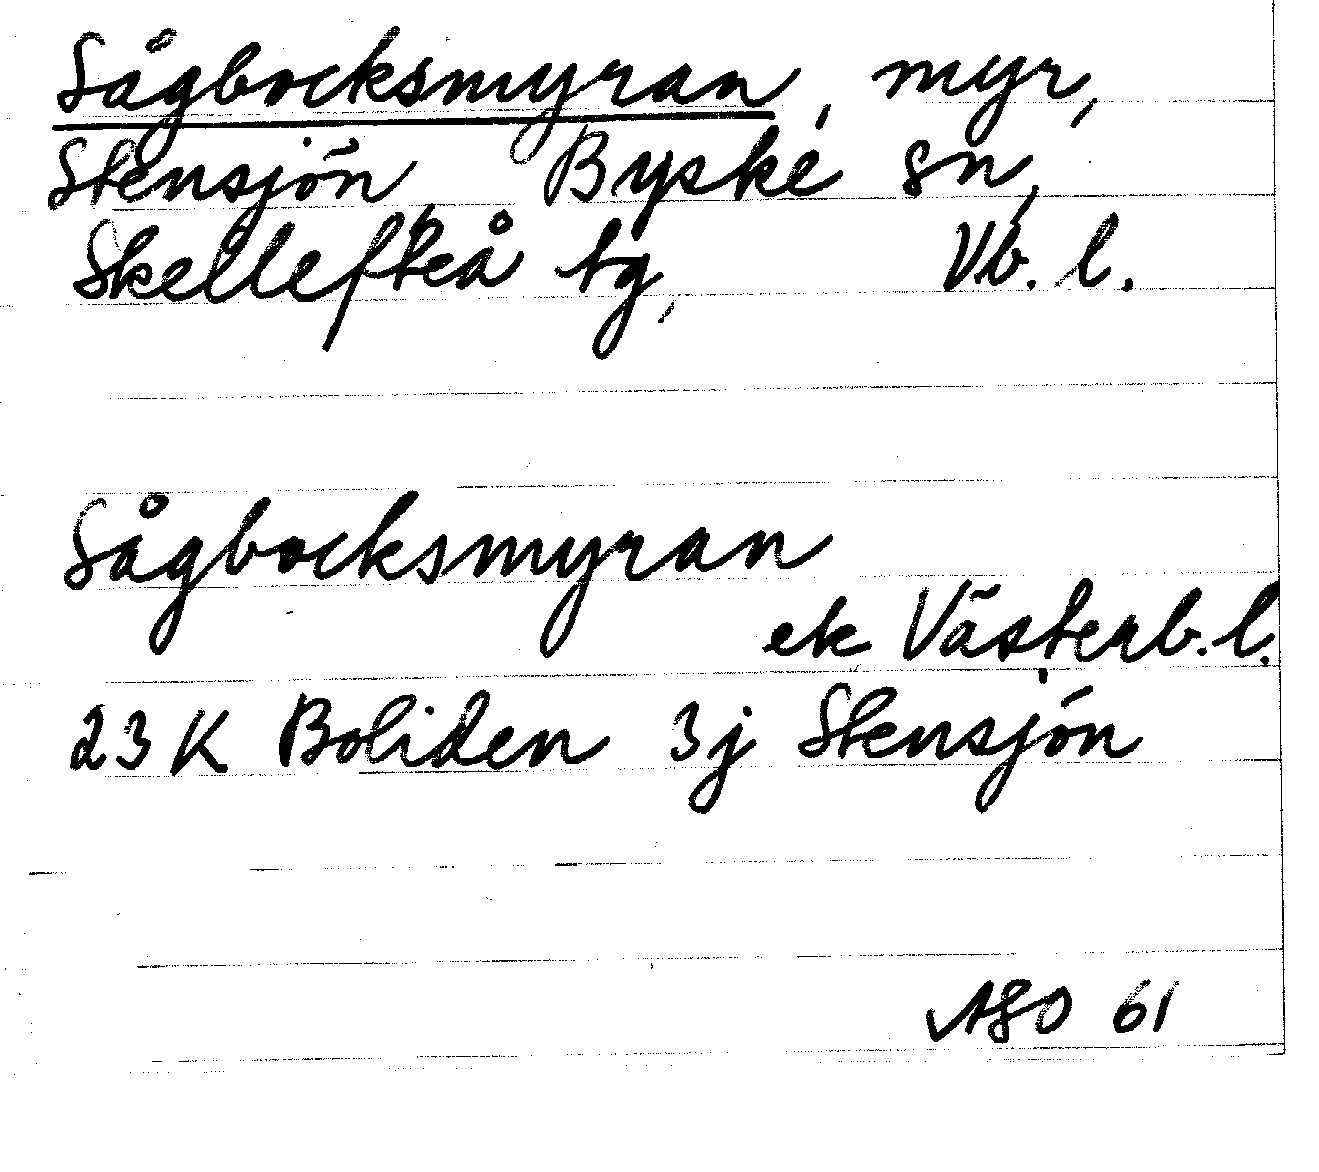 Sågbocksmyran, myr,
Stensjön, Byske sn,
Skellefteå tg, Vb. l.
Sågbocksmyran
ek Västerb. l.
23 K Boliden 3j Stensjön
ASO 61